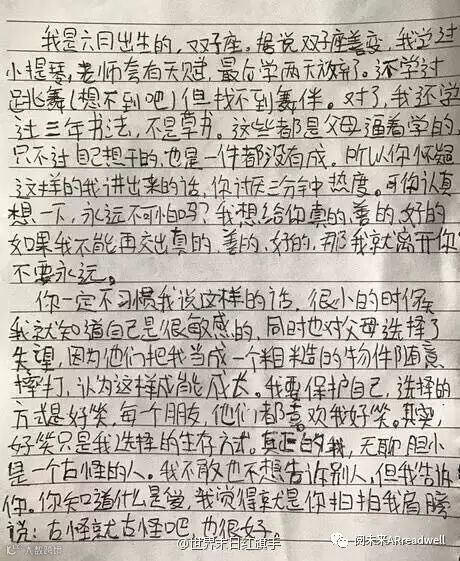 我是六月出生的,双子座。据说双子座善变,我学过
小提琴,老师夸有天赋,最后学两天放弃了。还学过
跳舞(想不到吧)但找不到舞伴。对了,我还学
过三年书法,不是草书。这些都是父母逼着学的,
只不过自己想干的,也是一件都没有成。所以你怀疑
这样的我讲出来的话,你讨厌三分钟热度。可你认真
想一下,永远不可怕吗?我想给你真的,善的,好的
如果我不能再交出真的,善的,好的,那我就离开你
不要永远。
你一定不习惯我说这样的话,很小的时候
我就知道自己是很敏感的,同时也对父母选择了
失望,因为他们把我当成一个粗糙的物件随意
摔打,认为这样成能成长。我要保护自己,选择的
方式是好笑,每一个朋友,他们都喜欢我好笑。其实,
好笑只是我选择的生存方式。真正的我,无聊胆小
是一个古怪的人。我不敢也不想告诉别人,但我告诉
你。你知道什么是爱,我觉得就是你拍拍我肩膀
说:古怪就古怪吧,也很好。
大数跨境
@世界末日红旗手
阅未来ARreadwell